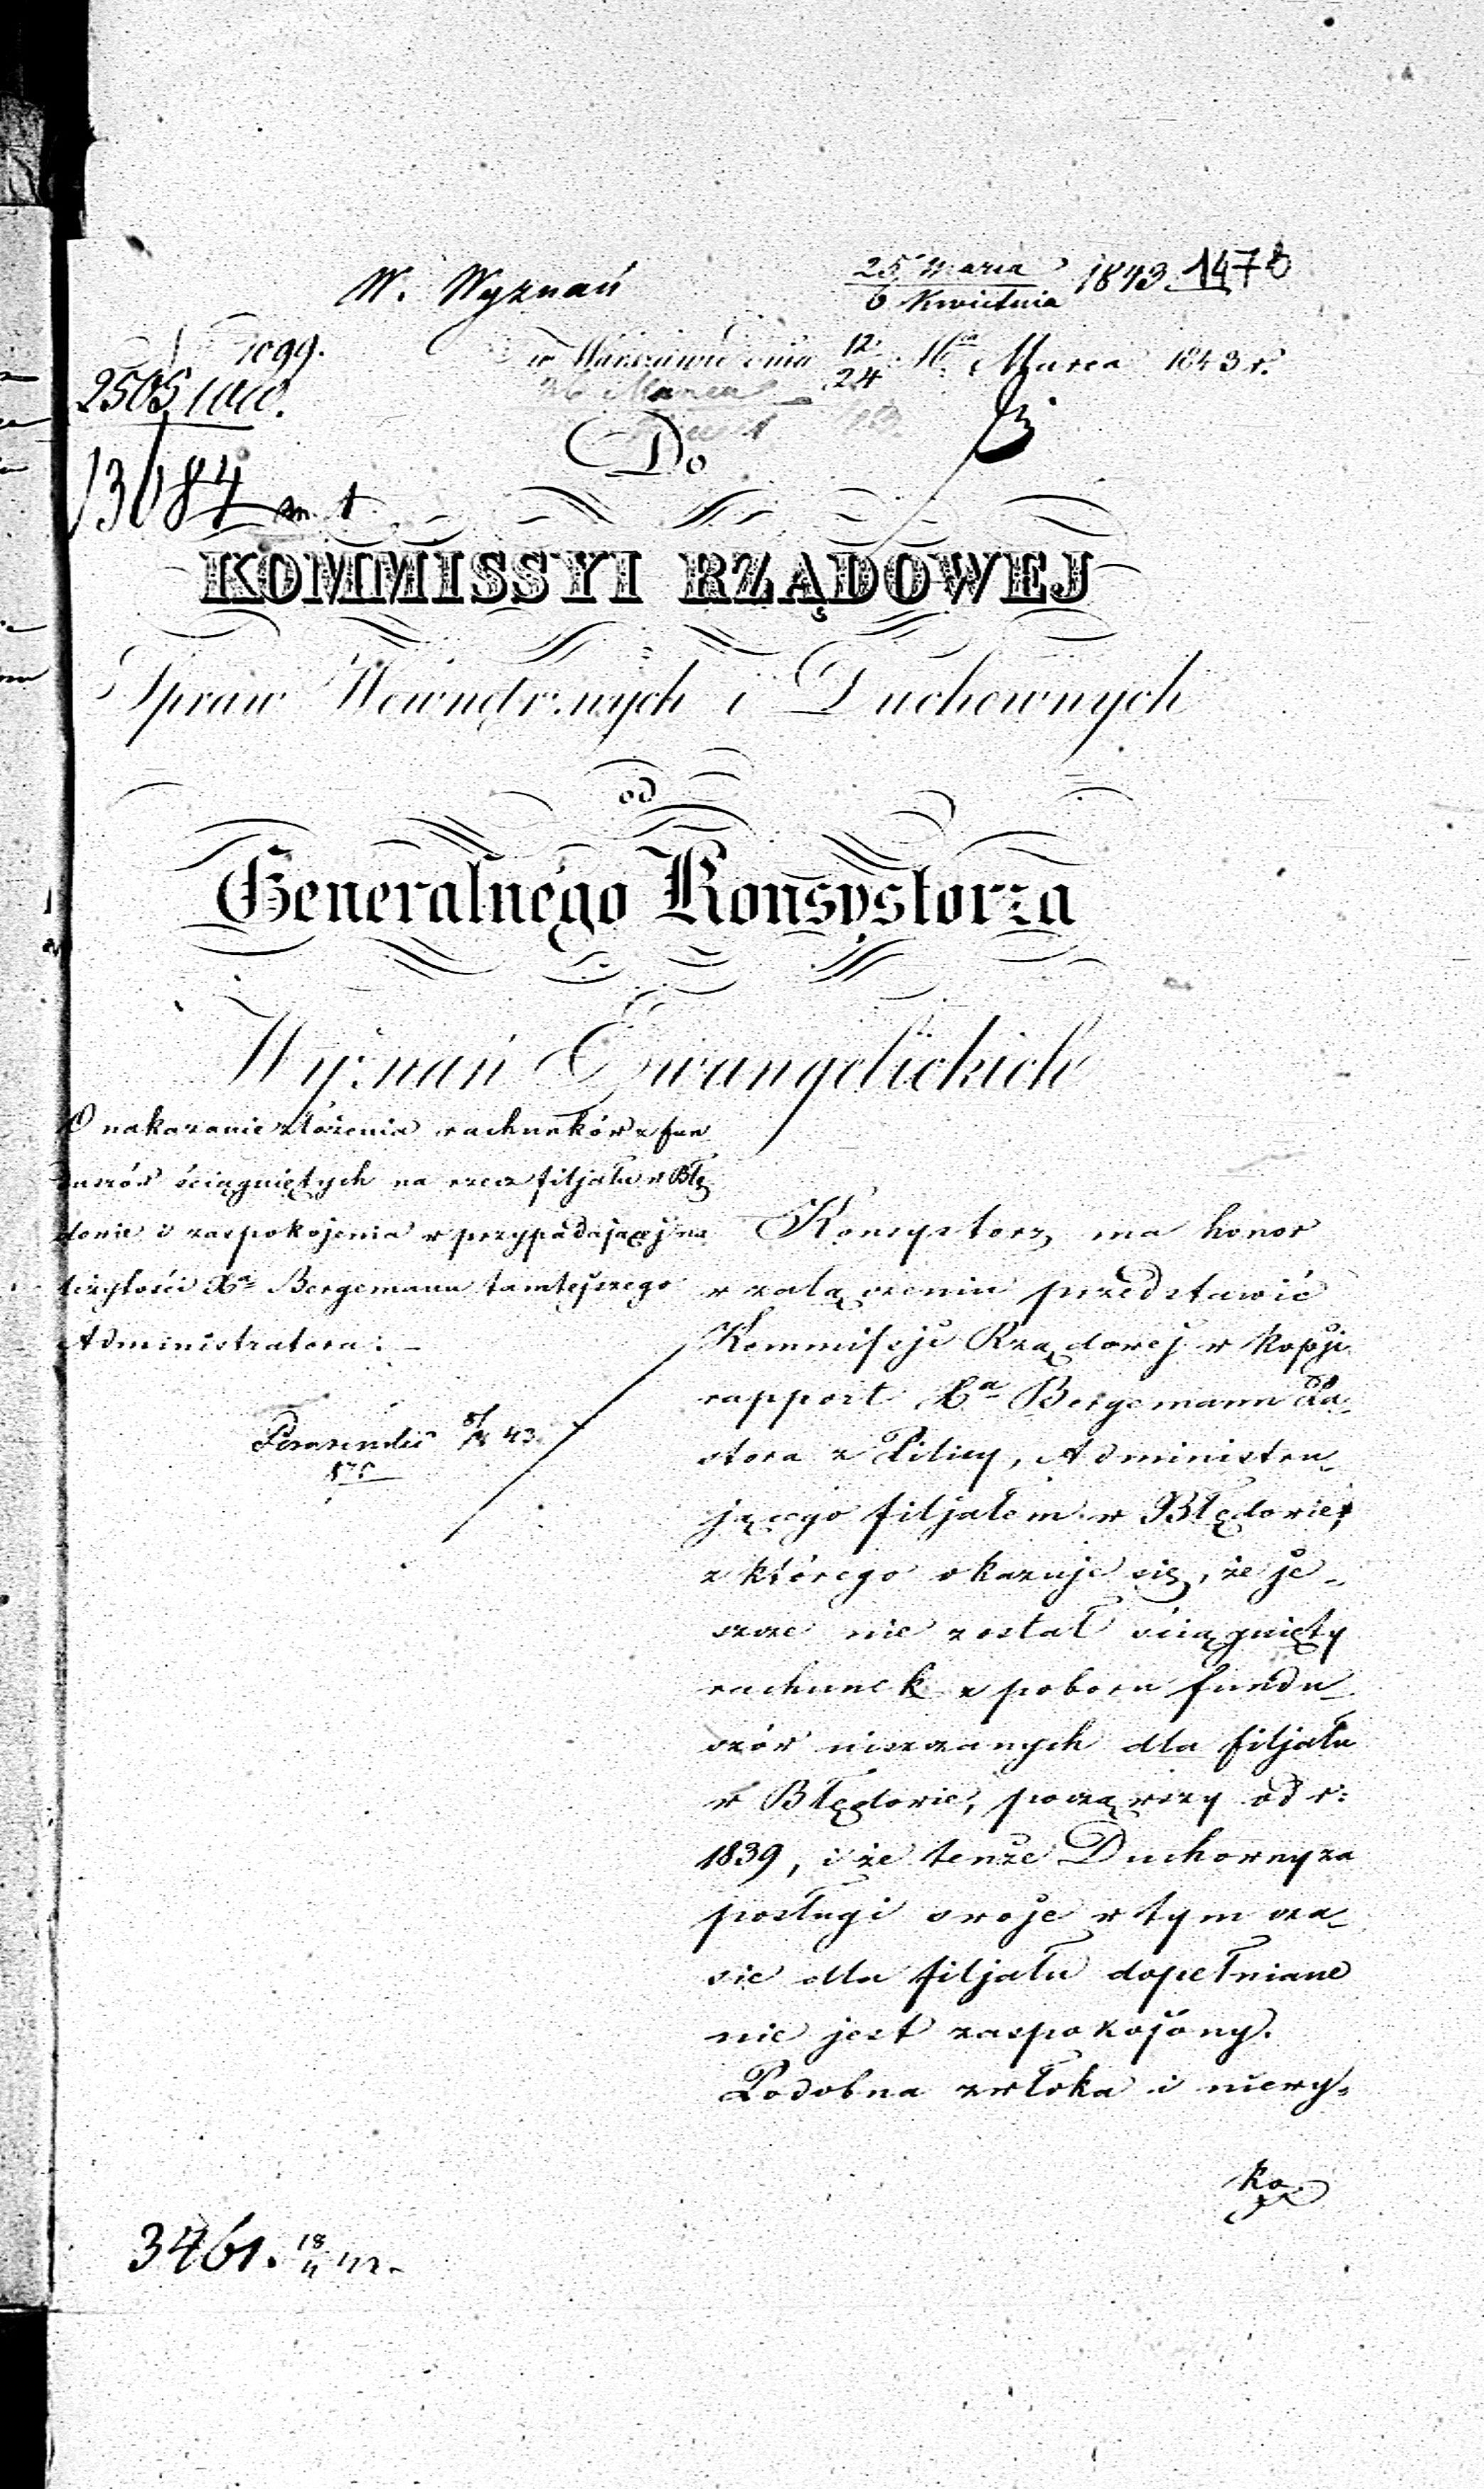 W. Wyznań
25 Marca 1843. 1478
6 Kwietnia
1099.
w Warszawie dnia 12/24 Mca Marca 1843 r.
2505
26 Marca
Do
13684
KOMMISSYI RZĄDOWEJ
Spraw Wewnętrznych i Duchownych
od
Generalnego Konsystorza
Wyznań Ewangelickich
O nakazanie złożenia rachunków z fun
duszów ściągniętych na rzecz filjału w Błę
dowie i zaspokojenia w przypadającej na
leżytości Xa Bergemann tamtejszego
Administratora:
43.
Konsystorz ma honor
w załączeniu przedstawić
Kommissyi Rządowej w kopji
rapport Xa Bergemann Pa-
stora z Pilicy, Administru-
jącego filjałem w Błędowie,
z którego okazuje się, że je-
szcze nie został ściągnięty
rachunek z poboru fundu-
szów niszczanych dla filjału
w Błędowie, począwszy od r:
1839, i że tenże Duchowny za
posługi swoje w tym cza-
sie dla filjału dopełniane
nie jest zaspokojony.
Podobna zwłoka i niewy-
ko
3461. 18/4